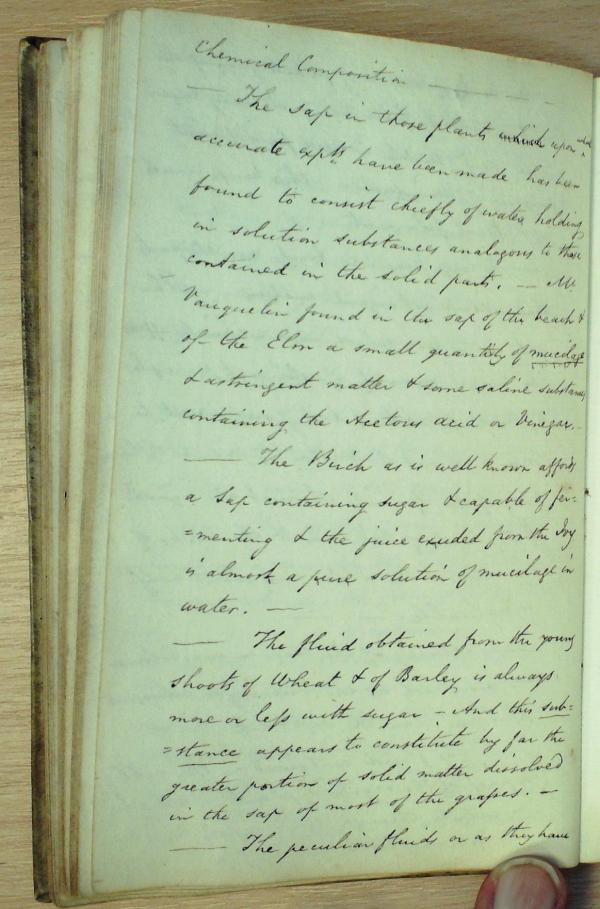 Chemical Composition ———
— The sap in those plants which upon which
accurate expts have been made has been
found to consist chiefly of water holding
in solution substances analogous to those
contained in the solid parts. — Mr
Vauquelin found in the sap of the beach &
of the Elm a small quantity of mucilage
& astringent matter & some saline substances
containing the Acetous acid or Vinegar. —
— The Birch as is well known affords
a Sap containing sugar & capable of fer=
=menting & the juice exuded from the Ivy
is almost a pure solution of mucilage in
water. —
— The fluid obtained from the young
shoots of Wheat & of Barley is always
more or less with sugar – And this sub=
=stance appears to constitute by far the
greater portion of solid matter dissolved
in the sap of most of the grasses. –
— The peculiar fluids or as they have